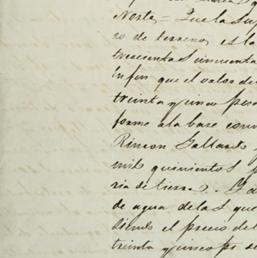 Norte = Que la su
ro de terreno, es la
trescientas cincuenta
En fin que el valor de
treinta y cinco pesos
forme a la base conv
Rincon Gallard
mil quinientos p
ria de tierra.
de agua de las que
siendo el precio de
treinta y cinco ps de